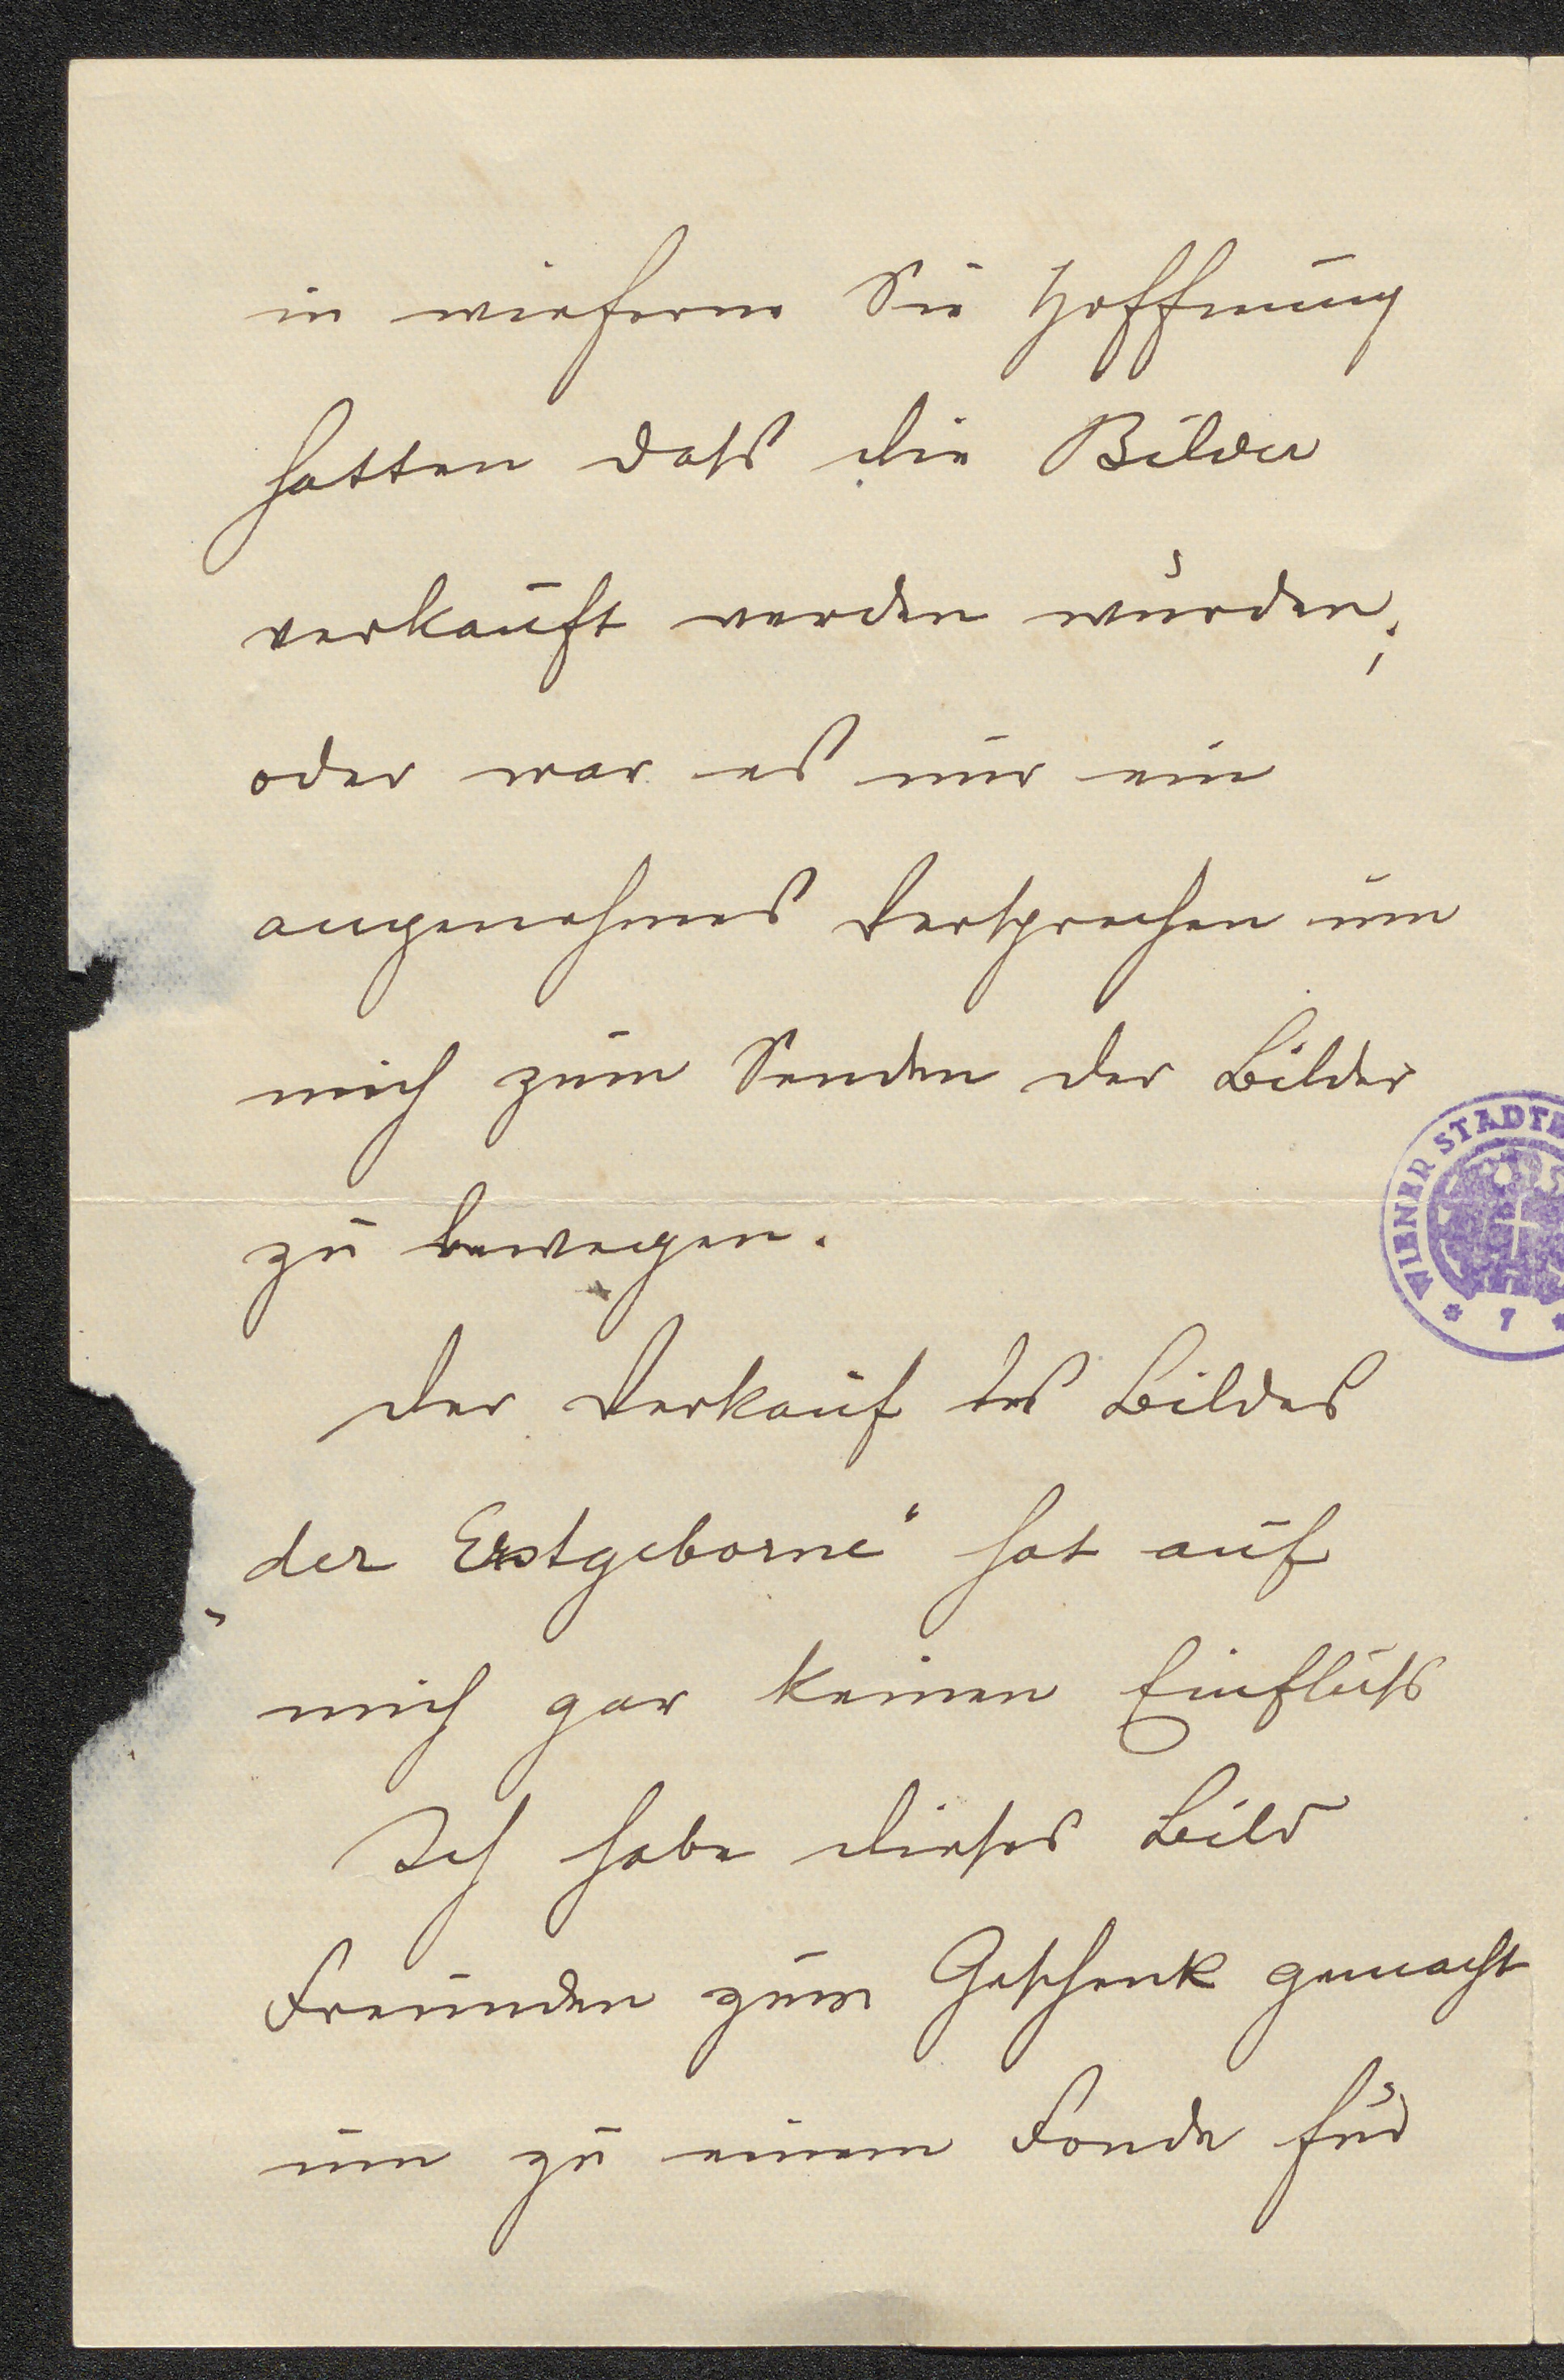 in wieferne Sie Hoffnung
hatten dass die Bilder
verkauft werden würden;
oder war es nur ein
angenehmes Versprechen um
mich zum Senden der Bilder
zu bewegen.
Der Verkauf des Bildes
„der Erstgeborne“ hat auf
mich gar keinen Einfluss
Ich habe dieses Bild
Freunden zum Geschenk gemacht
um zu einem Fonde für
WIENER STADT
* 7 *